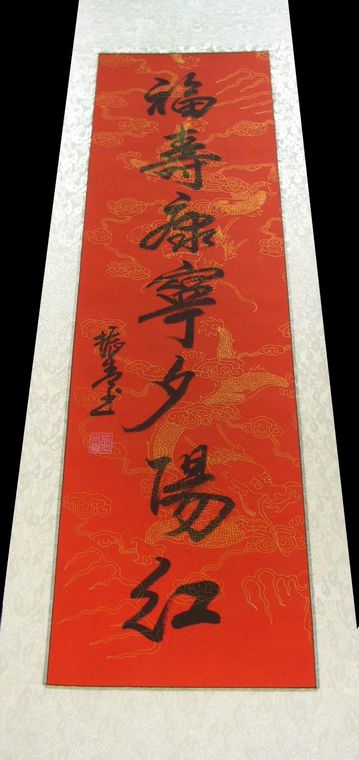 福壽康寧夕陽紅
振春書